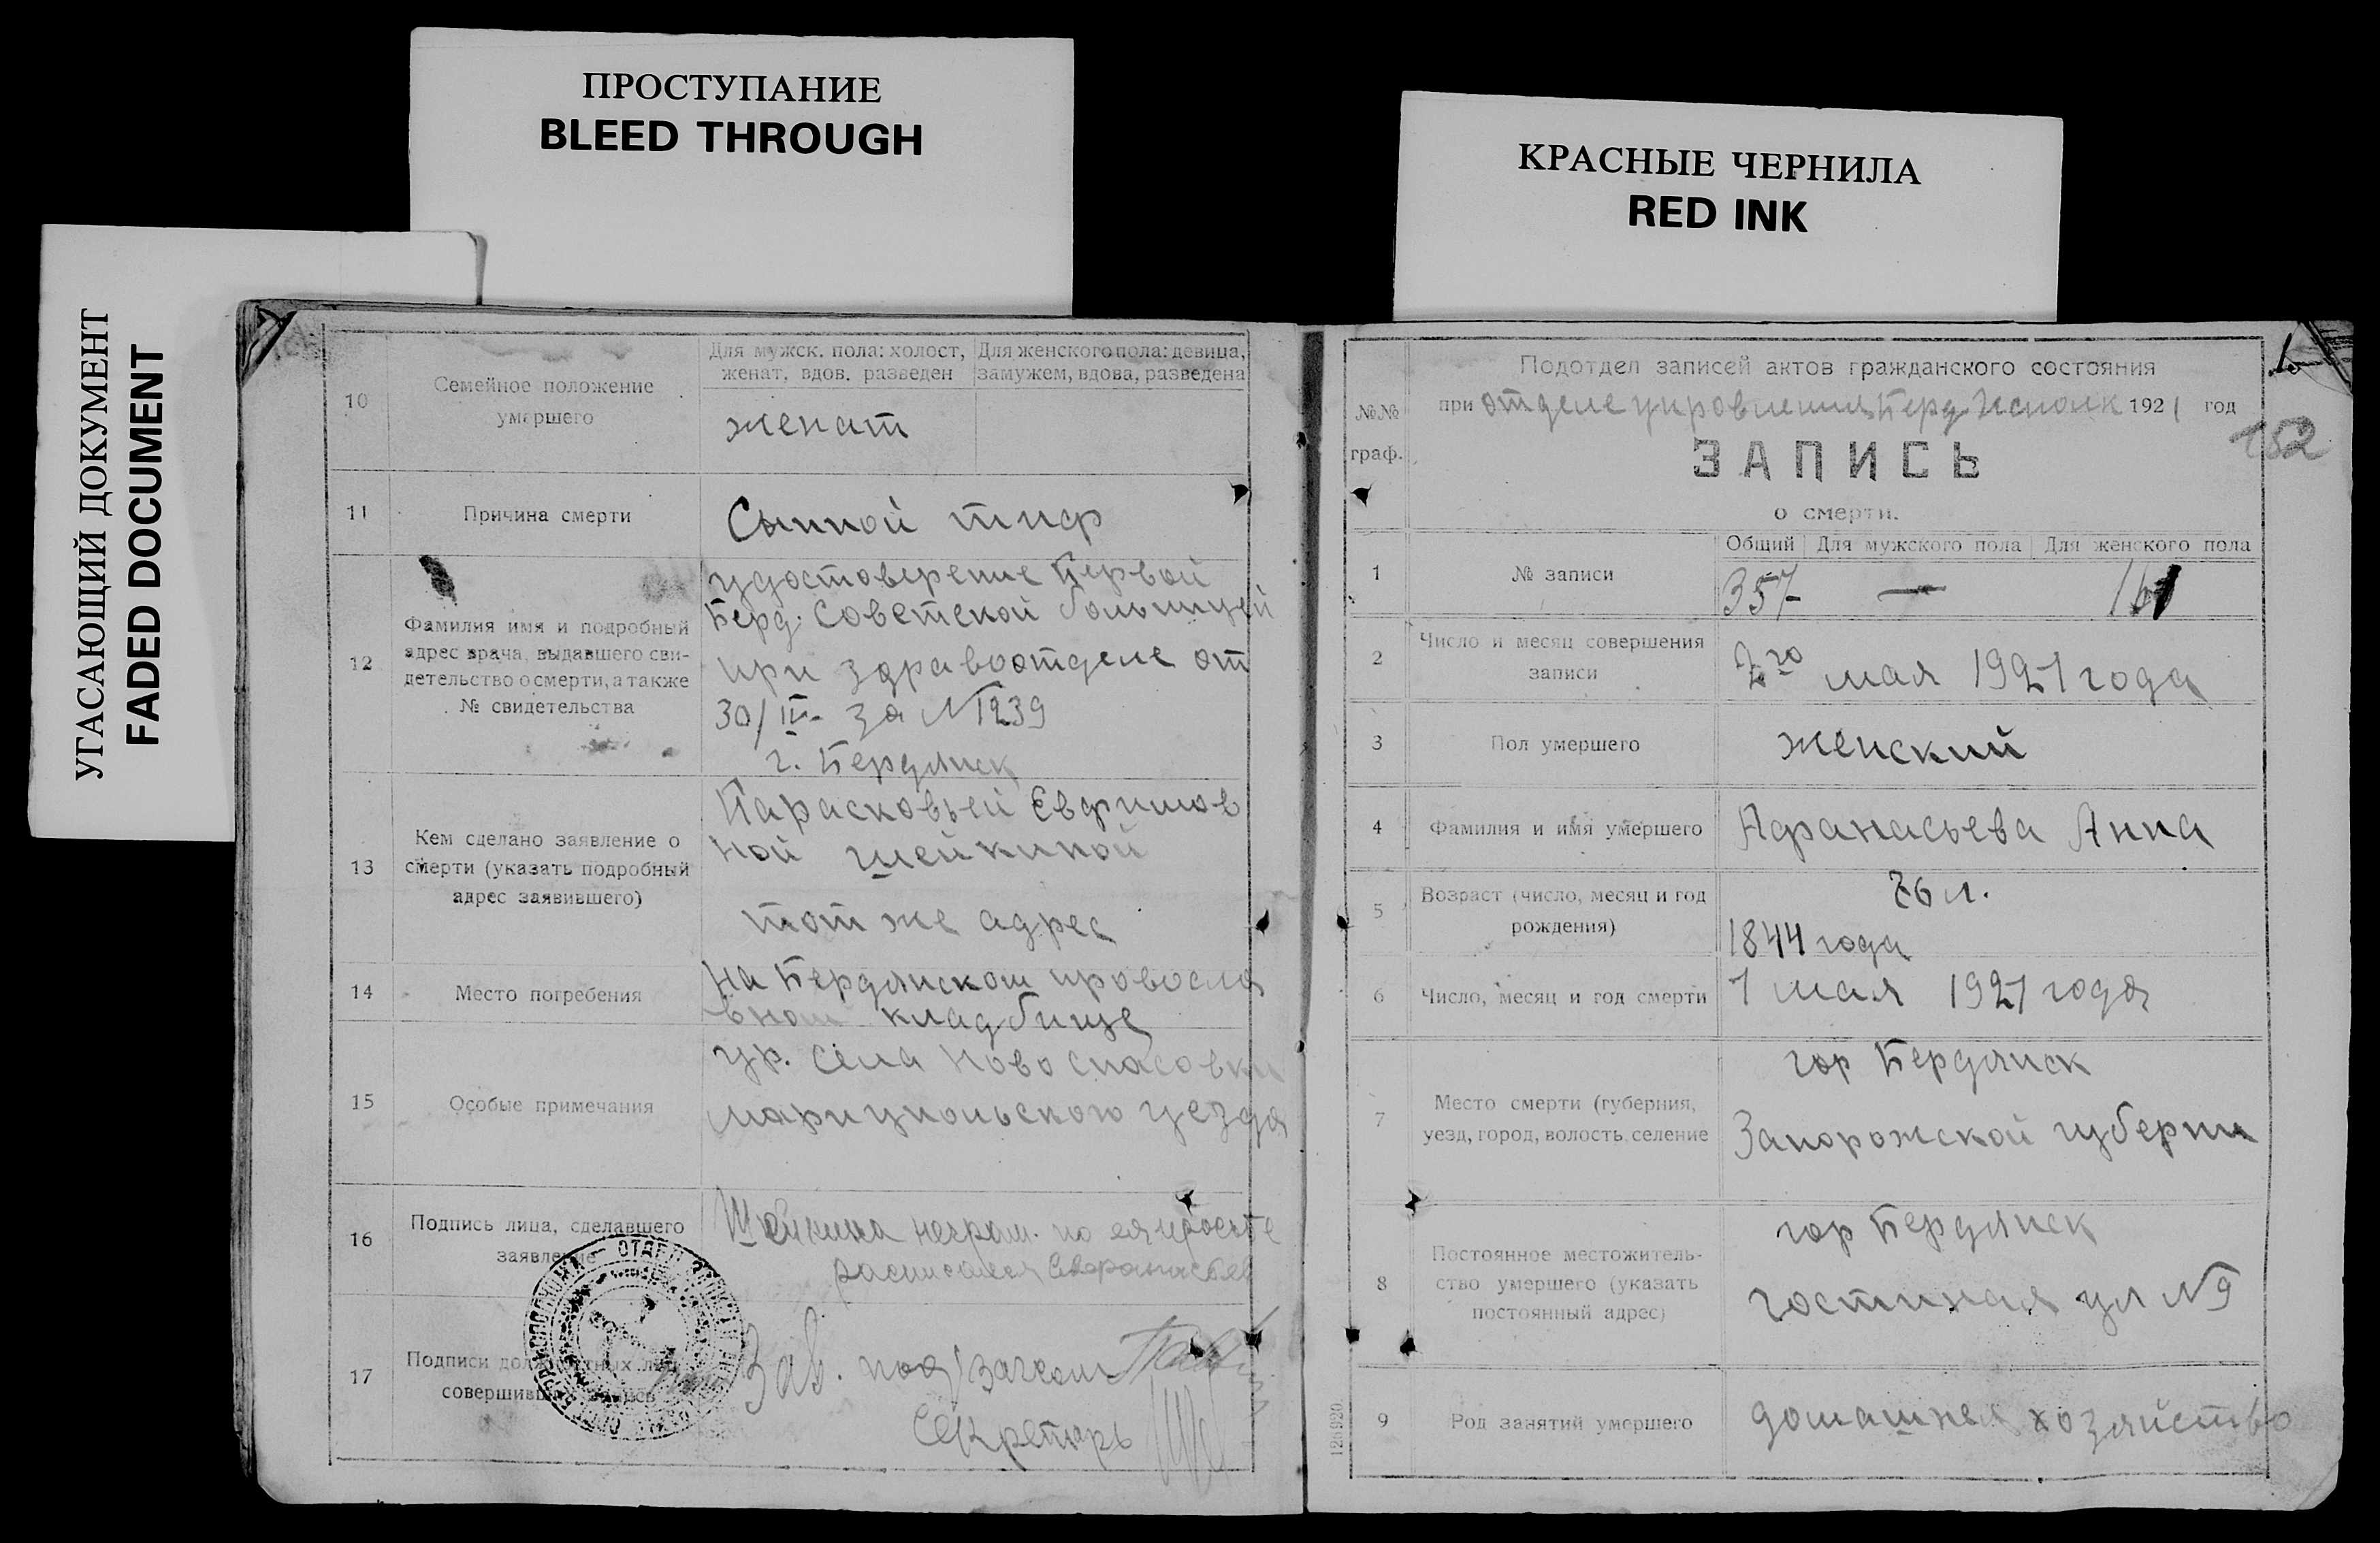 ПРОСТУПАНИЕ
BLEED THROUGH
КРАСНЫЕ ЧЕРНИЛА
RED INK
УГАСАЮЩИЙ ДОКУМЕНТ
FADED DOCUMENT
10
Семейное положение
умершего
Для мужск. пола: холост,
женат, вдов. разведен
Для женского пола: девица,
замужем, вдова, разведена
женат
11
Причина смерти
Сыпной тиф
12
Фамилия имя и подробный
адрес врача, выдавшего сви-
детельство о смерти, а также
№ свидетельства
удостоверение Первой
Берд. Советской больницей
при здравоотделе от
30/IV- за N 1239
г. Бердянск
13
Кем сделано заявление о
смерти (указать подробный
адрес заявившего)
Парасковьей Евфимов
ной Шейкиной
тот же адрес
14
Место погребения
на Бердянском провосла
вном кладбище
15
Особые примечания
ур. села Ново спасовки
мариупольского уезда
16
Подпись лица, сделавшего
заявление
Шейкина неграм. по ея просьбе
расписался Афанасьев
17
Подписи должностных лиц
совершивших запись
Зав. под загсом
Секретарь
№№
граф.
Подотдел записей актов гражданского состояния
при отделе управления Берд Исполк 1921 год
152
ЗАПИСЬ
о смерти.
1
№ записи
Общий Для мужского пола Для женского пола
357 — 161
2
Число и месяц совершения
записи
2го мая 1921 года
3
Пол умершего
женский
4
Фамилия и имя умершего
Афанасьева Анна
5
Возраст (число, месяц и год
рождения)
76 л.
1844 года
6
Число, месяц и год смерти
1 мая 1921 года
7
Место смерти (губерния,
уезд, город, волость, селение
гор Бердянск
Запорожской губерни
8
Постоянное местожитель-
ство умершего (указать
постоянный адрес)
гор Бердянск
гостиная ул N 9
9
Род занятий умершего
домашнея хозяйство